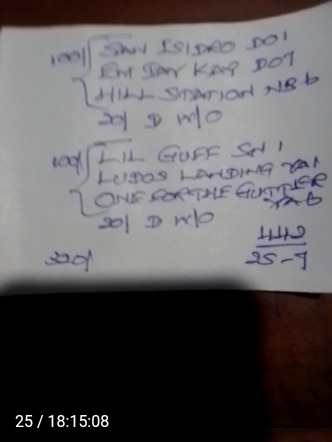 100/ SAN ISIDRO DO1
EM JAY KAY DO7
HILL STATION NB6
20/ D W/O
100/ LIL GUFF SH1
LUDOS LANDING YA1
ONE FOR THE GUTTER YA6
20/ D W/O
320/
442
25-7
25 / 18:15:08